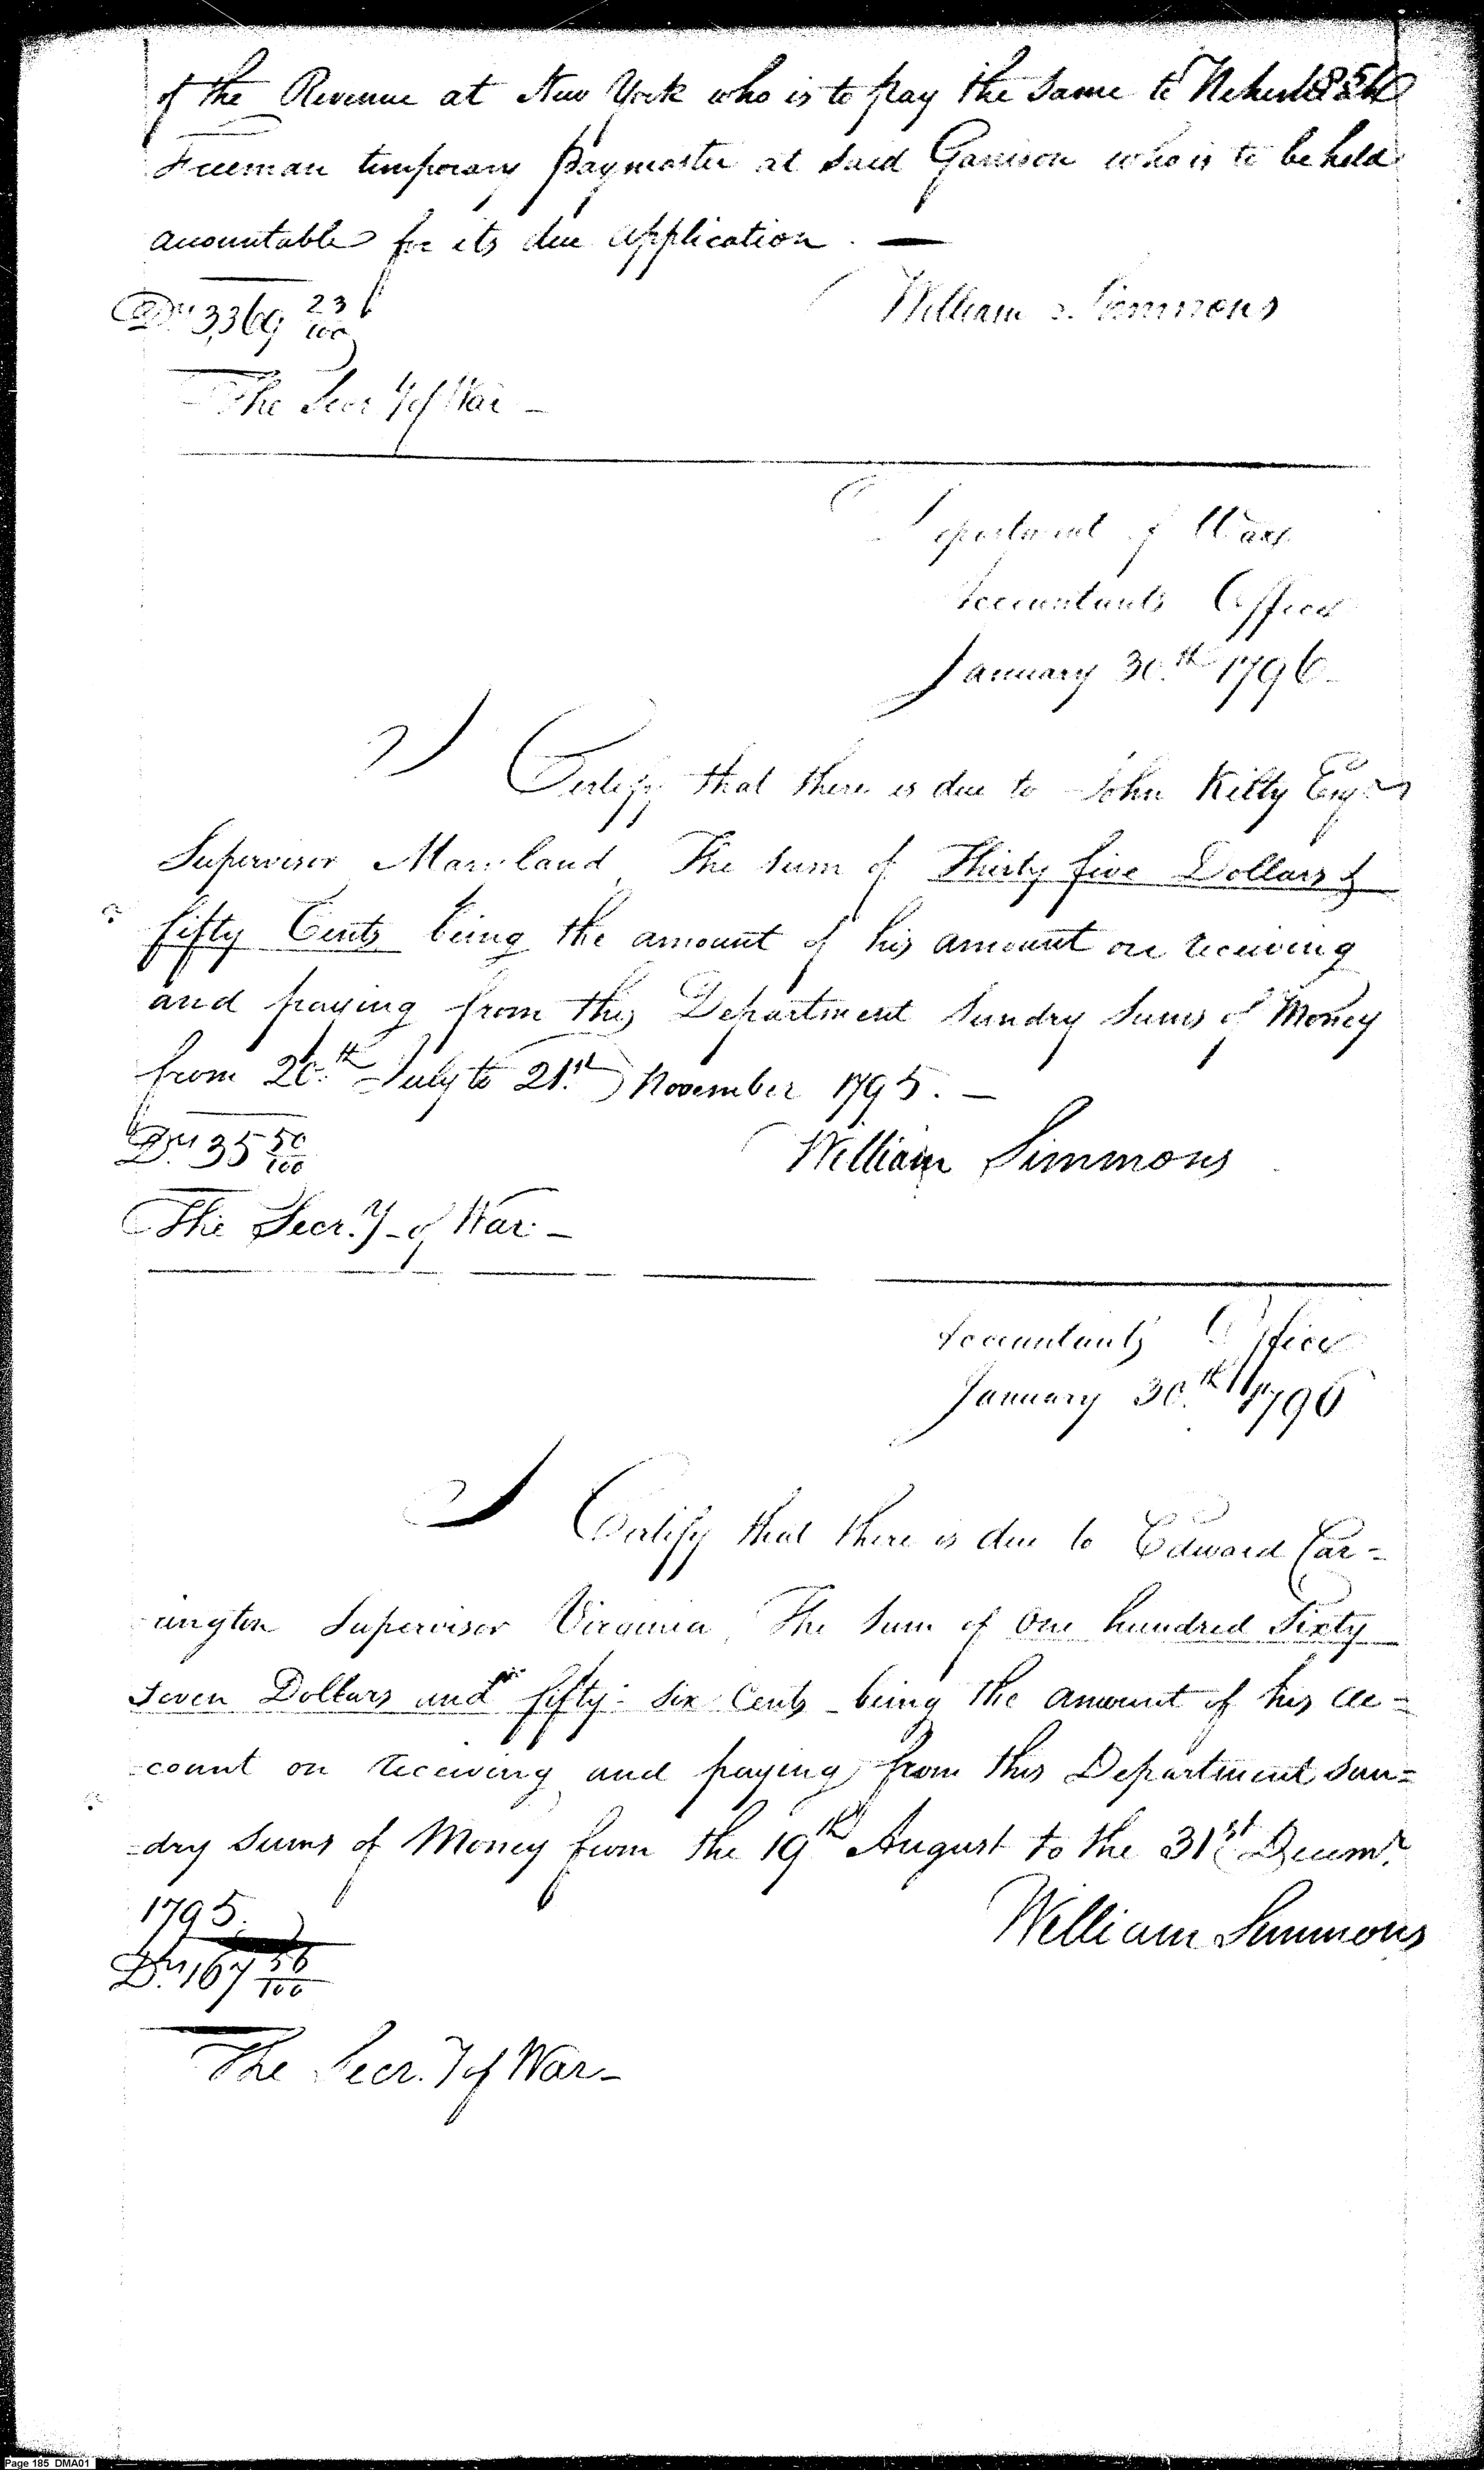 of the Revenue at New York who is to pay the same to
Freeman temporary paymaster at said Garrison who is to be held
accountable for its due application. —
Drs 3,369 23/100
William Simmons
The Secry of War –
Department of War
Accountants Office
January 30.th 1796–
I Certify that there is due to John Kilty Esqr
Supervisor Maryland, The sum of Thirty five Dollars &
fifty Cents being the amount of his amount on receiving
and paying from this Department sundry sums of Money
from 20.th July to 21.st November 1795. –
Drs 35 50/100
William Simmons
The Secr.y of War –
Accountants Office
January 30.th 1796
I Certify that there is due to Edward Car=
rington Supervisor Virginia, The sum of One hundred Sixty
seven Dollars and fifty- six Cents being the amount of his ac=
=count on receiving and paying from this Department sun=
=dry sums of Money from the 19th August to the 31st Decemr
1795.
William Simmons
Drs 167 56/100
The Secr.y of War–
Page 185 DMA01